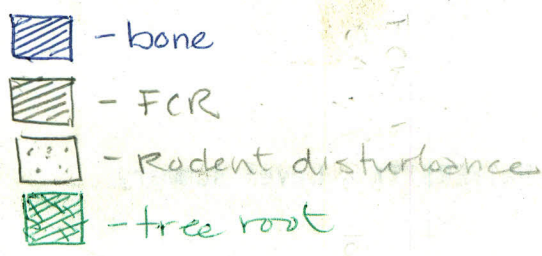 - bone
- FCR
- Rodent disturbance
- tree root